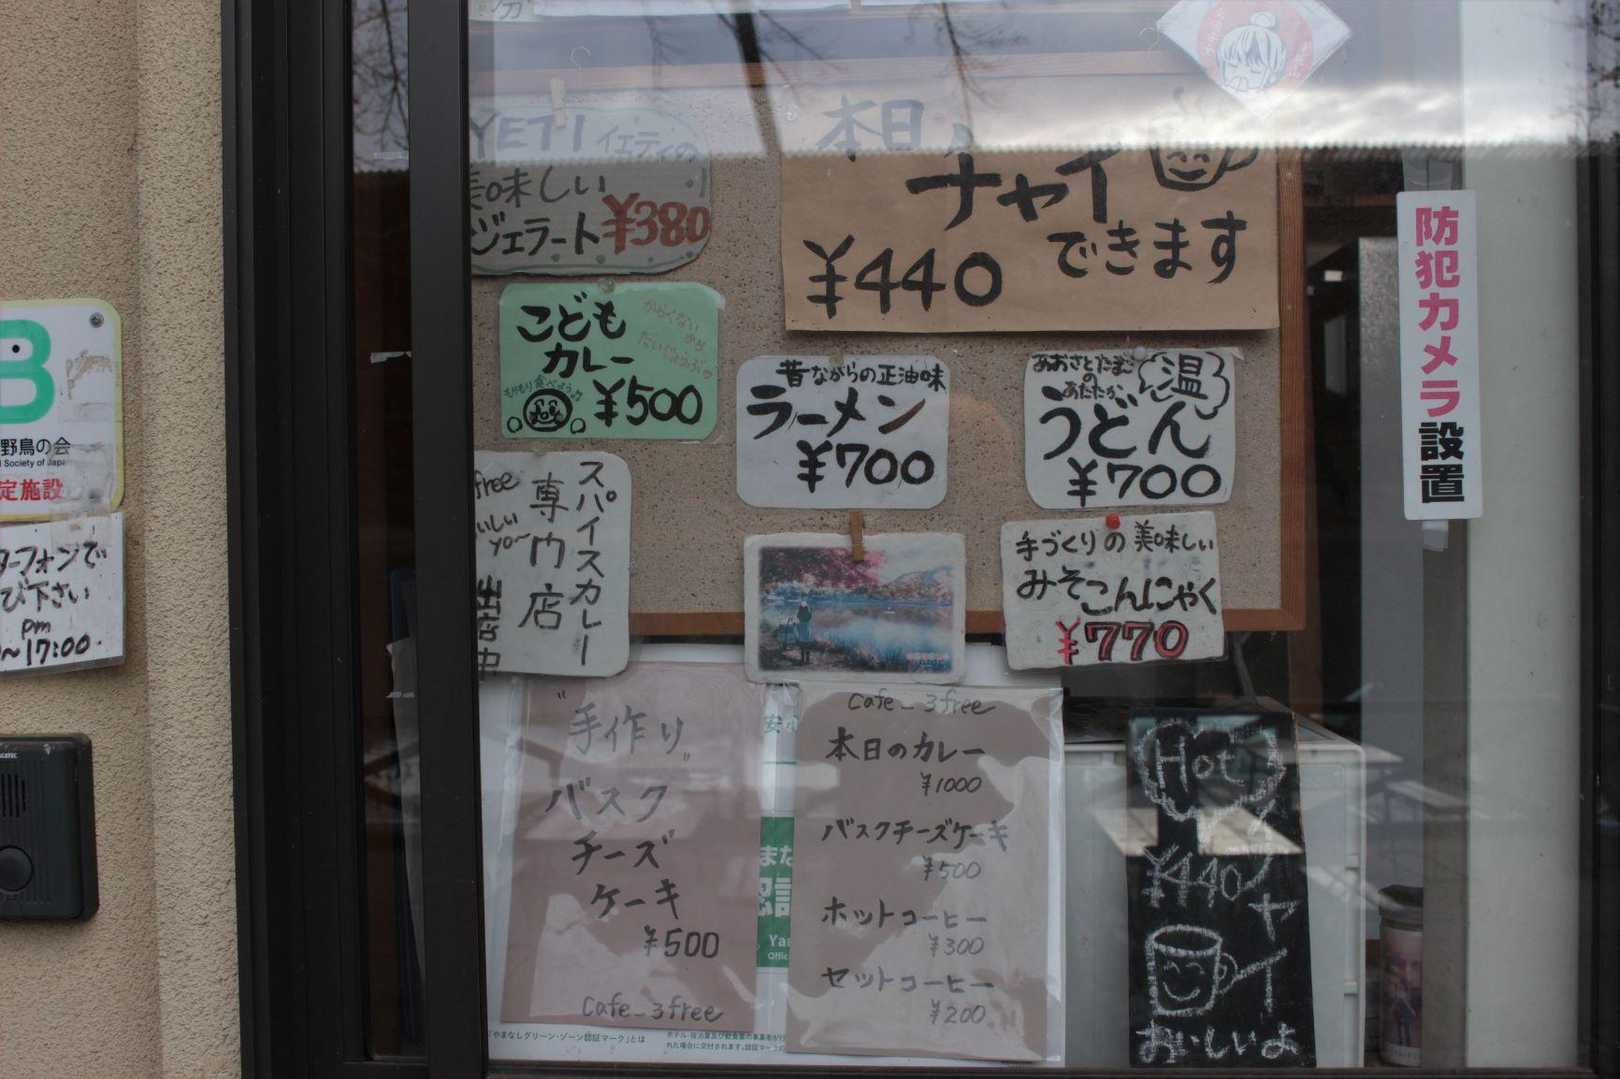 YETI イエティの
美味しい
ジェラート ¥380
本日
チャイ
できます
¥440
こども
カレー
からくない
だいじょうぶ
もりもり食べよう
¥500
昔ながらの正油味
ラーメン
¥700
あおさとたまご
の
あたたか
温
うどん
¥700
スパイスカレー
専門店
free
yo~
出店中
手づくりの美味しい
みそこんにゃく
¥770
"手作り"
バスク
チーズ
ケーキ
¥500
Cafe_3free
Cafe_3free
本日のカレー
¥1000
バスクチーズケーキ
¥500
ホットコーヒー
¥300
セットコーヒー
¥200
Hot
チャイ
¥440
おいしいよ
防犯カメラ設置
野鳥の会
Society of Japa
定施設
ターフォンで
び下さい
pm
~17:00.
「やまなしグリーン・ゾーン認証マーク」とは